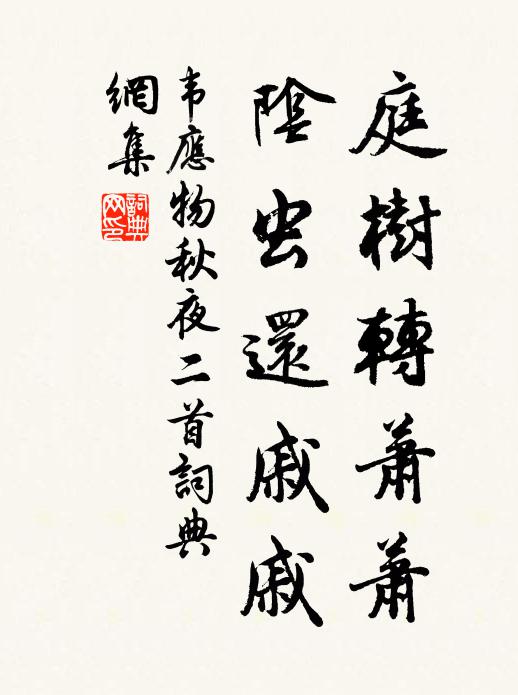 庭樹轉蕭蕭
陰虫還戚戚
韦應物秋夜二首詞典
網集
詞典
网印